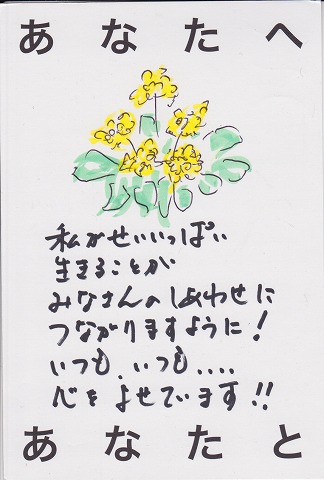 あなたへ
私がせいいっぱい
生きることが
みなさんのしあわせに
つながりますように!
いつも、いつも....
心をよせています!!
あなたと